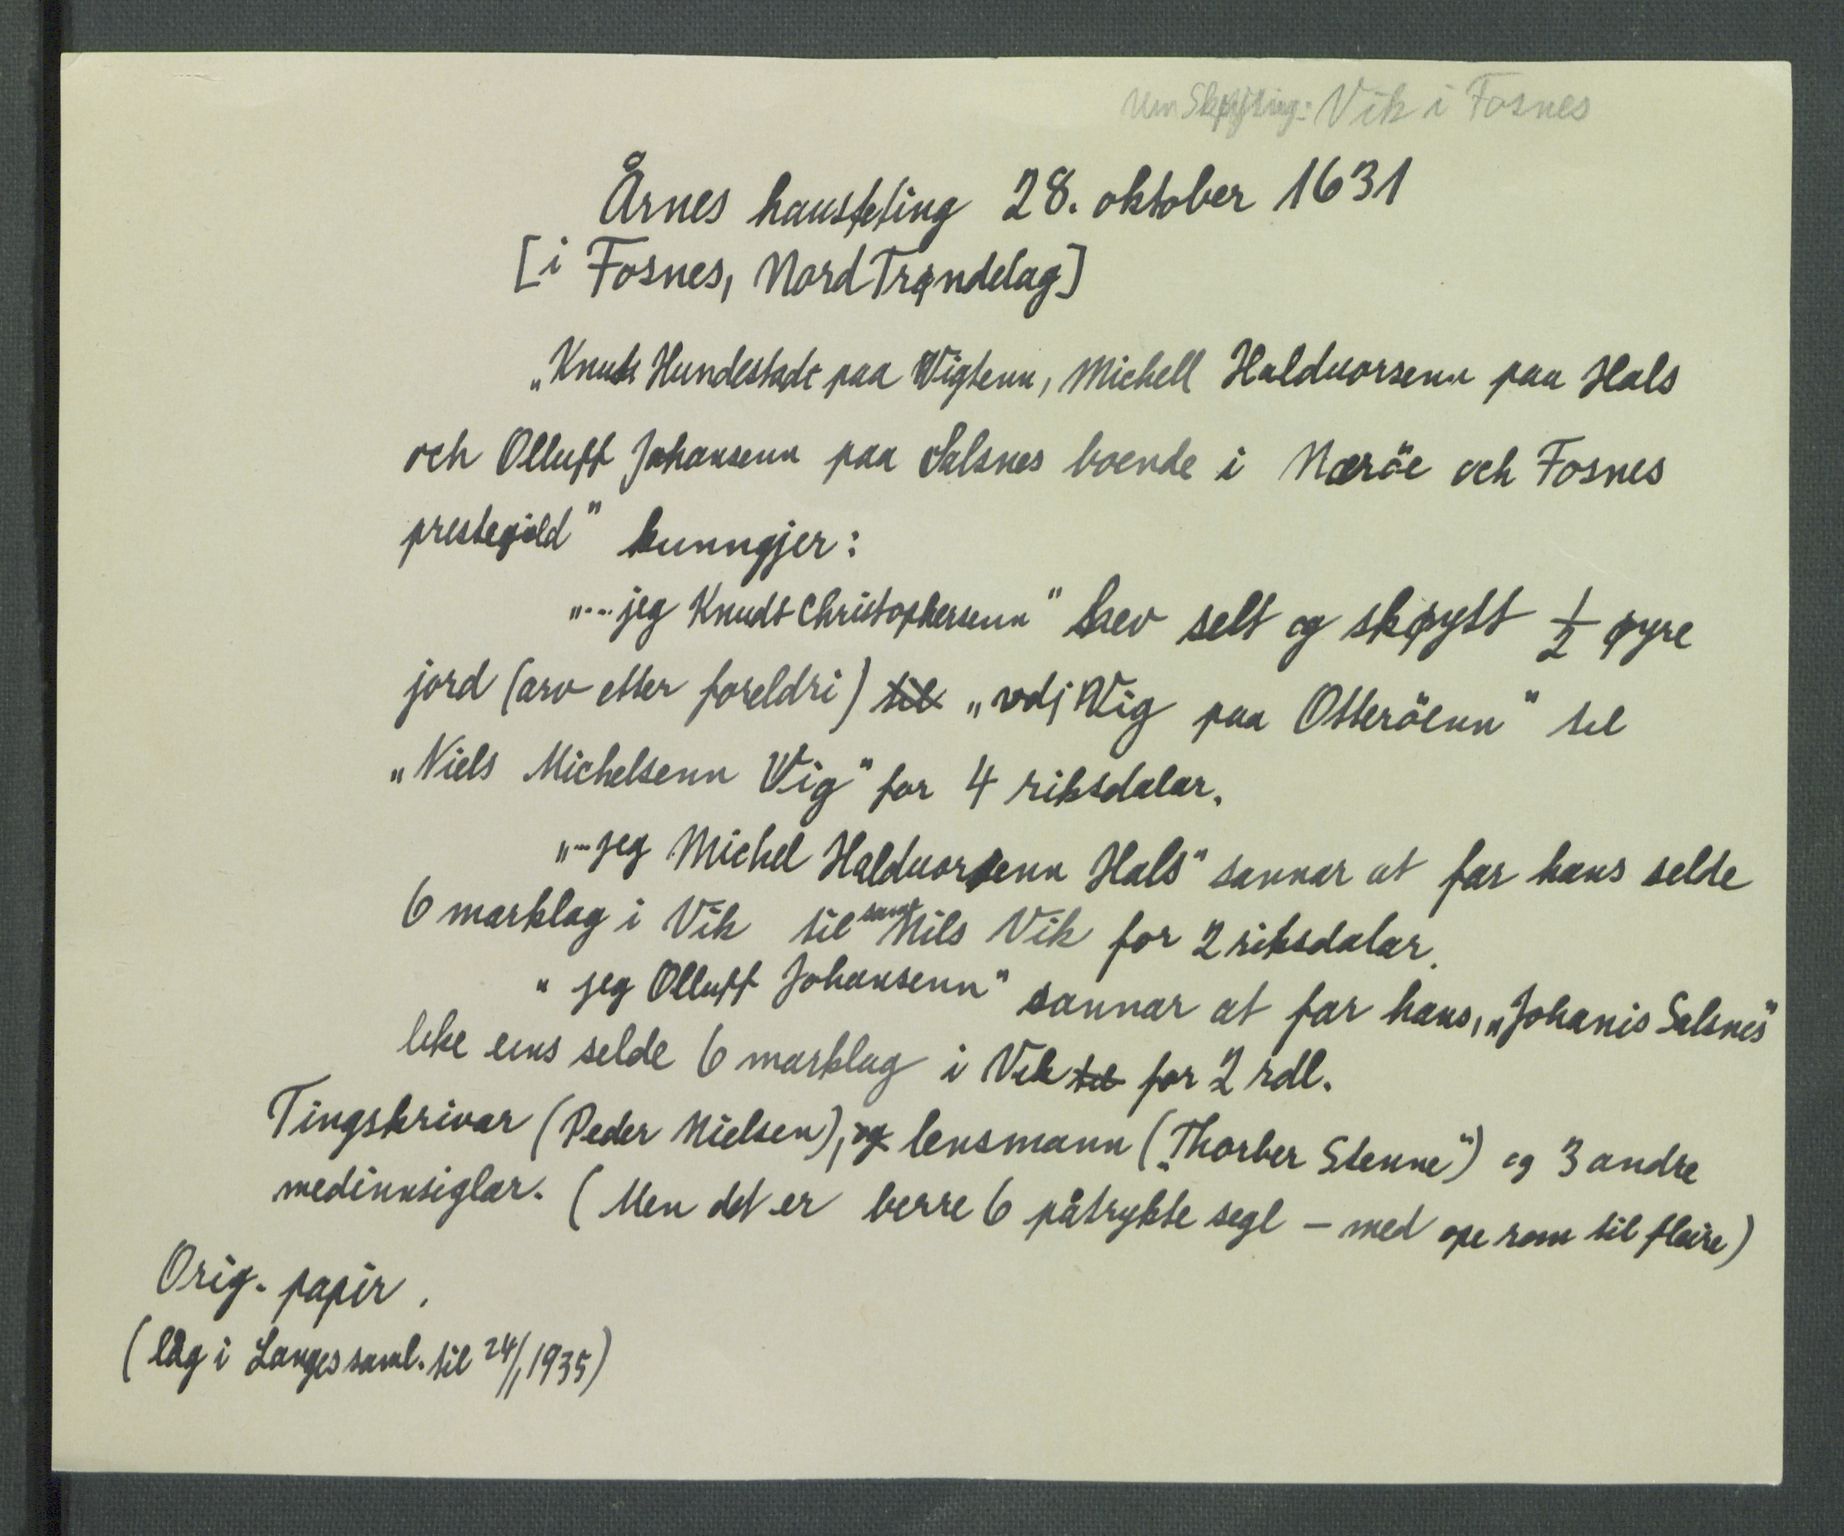 Um Skøyting: Vik i Fosnes
Årnes haustting 28. oktober 1631
[i Fosnes, Nord Trøndelag]
„Knudt Hundestadt paa Vigtenn, Michell Halduorsenn paa Hals
och Olluff Johansenn paa Salsnes boende i Næröe och Fosnes
prestegield" kunngjer:
„... jeg Knudt Christophersenn" hev selt og skøytt 1/2 øyre
jord (arv etter foreldri) til „vdj Wig paa Otteröenn" til
„Niels Michelsenn Wig" for 4 riksdalar.
„... jeg Michel Halduorsenn Hals" sannar at far hans selde
6 marklag i Vik til same Nils Vik for 2 riksdalar.
„ jeg Olluff Johansenn" sannar at far hans, „Johanis Salsnes"
like eins selde 6 marklag i Vik til for 2 rdl.
Tingskrivar (Peder Nielsen), og lensmann („Thorber Stenne") og 3 andre
medinnsiglar. (Men det er berre 6 påtrykte segl – med ope rom til fleire)
Orig. papir.
(låg i Langes saml. til 24/1 1935)